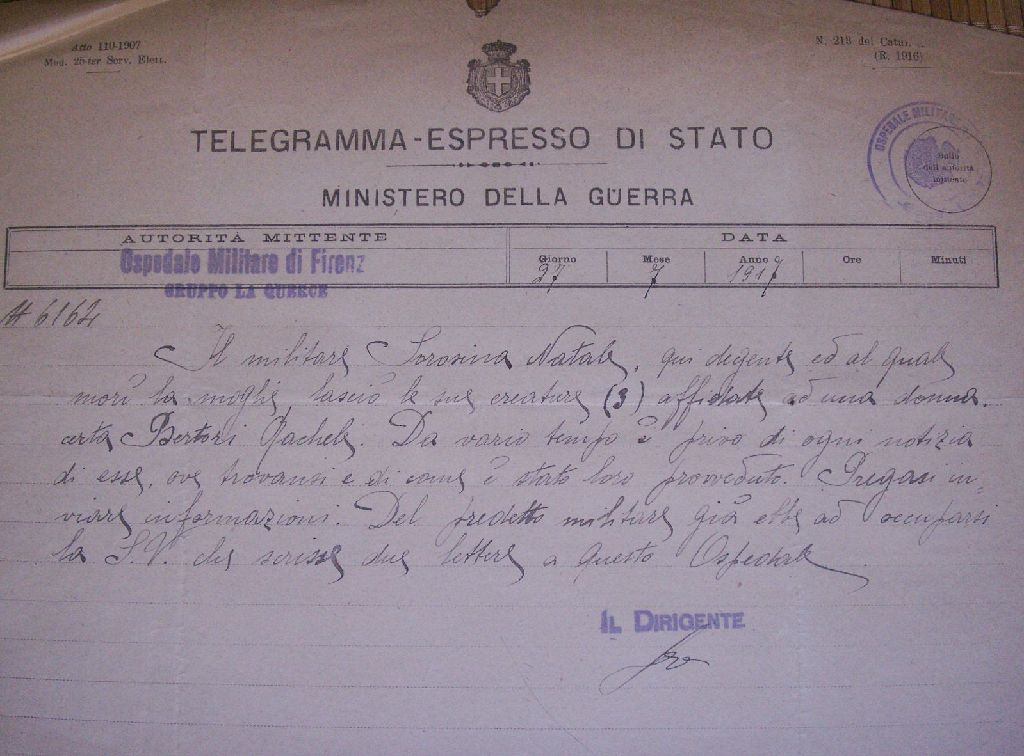 Atto 110-1907
Mod. 25-ter Serv. Elett.
N. 213 del Catal.
(R. 1916)
TELEGRAMMA-ESPRESSO DI STATO
MINISTERO DELLA GUERRA
OSPEDALE MILITARE
Bollo
dell'autorità
AUTORITÀ MITTENTE
DATA
Ospedale Militare di Firenz
GRUPPO LA QUERCE
Giorno Mese Anno Ore Minuti
27 7 1917
N 6164
Il militare Sorosina Natale, qui degente ed al quale
morì la moglie, lasciò le sue creature (3) affidate ad una donna,
certa Bertori Rachele. Da vario tempo è privo di ogni notizia
di esse, ove trovansi e di come è stato loro provveduto. Pregasi in-
viare informazioni. Del predetto militare già ebbe ad occuparsi
la S.V. che scrisse due lettere a questo Ospedale
IL DIRIGENTE